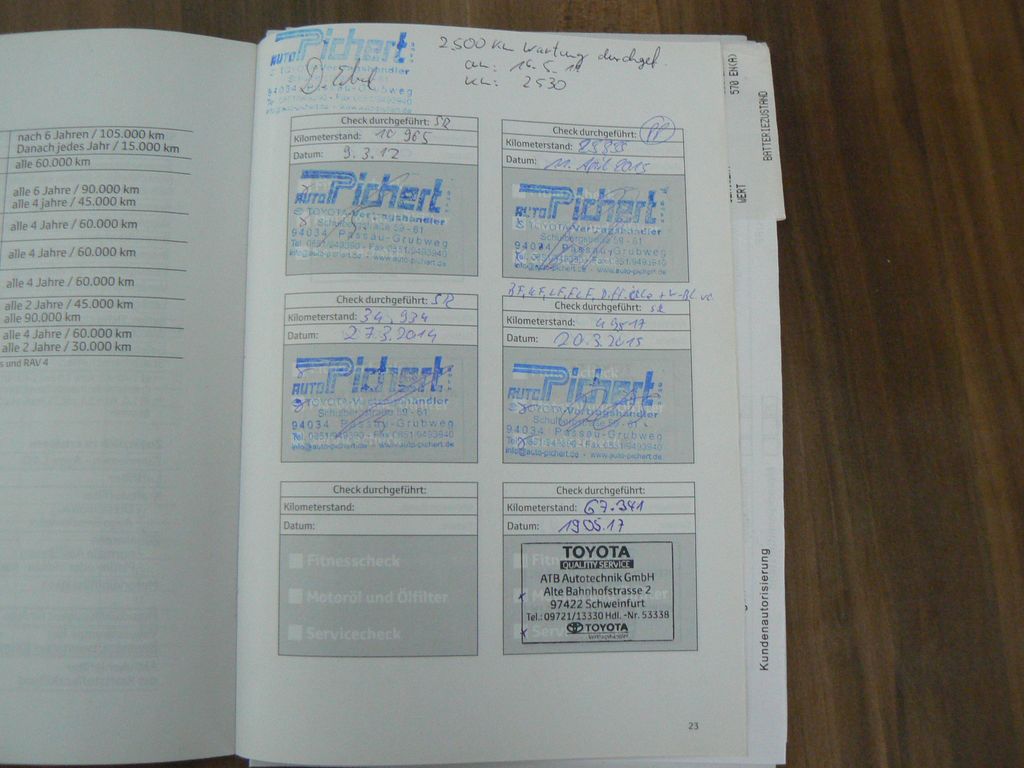 nach 6 Jahren / 105.000 km
Danach jedes Jahr / 15.000 km
alle 60.000 km
alle 6 Jahre / 90.000 km
alle 4 Jahre / 45.000 km
alle 4 Jahre / 60.000 km
alle 4 Jahre / 60.000 km
alle 4 Jahre / 60.000 km
alle 2 Jahre / 45.000 km
alle 90.000 km
alle 4 Jahre / 60.000 km
alle 2 Jahre / 30.000 km
s und RAV 4
AUTO Pichert
TOYOTA-Vertragshändler
94034 Passau-Grubweg
2500 Km Wartung durchgef.
am:
km: 2530
Check durchgeführt: SR
Kilometerstand: 10 965
Datum: 9.3.12
AUTO Pichert
TOYOTA-Vertragshändler
Schulbergstraße 59 - 61
94034 Passau-Grubweg
Tel. 0851/949390 - Fax 0851/9493940
info@auto-pichert.de - www.auto-pichert.de
Check durchgeführt:
Kilometerstand:
Datum: 11. April
AUTO Pichert
TOYOTA-Vertragshändler
Schulbergstraße 59 - 61
94034 Passau-Grubweg
Tel. 0851/949390 - Fax 0851/9493940
info@auto-pichert.de - www.auto-pichert.de
Check durchgeführt: SR
Kilometerstand: 34.934
Datum: 27.3.2014
AUTO Pichert
TOYOTA-Vertragshändler
Schulbergstraße 59 - 61
94034 Passau-Grubweg
Tel. 0851/949390 - Fax 0851/9493940
info@auto-pichert.de - www.auto-pichert.de
Check durchgeführt: SR
Kilometerstand:
Datum: 20.3.2015
AUTO Pichert
TOYOTA-Vertragshändler
Schulbergstraße 59 - 61
94034 Passau-Grubweg
Tel. 0851/949390 - Fax 0851/9493940
info@auto-pichert.de - www.auto-pichert.de
Check durchgeführt:
Kilometerstand:
Datum:
Fitnesscheck
Motoröl und Ölfilter
Servicecheck
Check durchgeführt:
Kilometerstand: 67.341
Datum: 19.05.17
TOYOTA
QUALITY SERVICE
ATB Autotechnik GmbH
Alte Bahnhofstrasse 2
97422 Schweinfurt
Tel.: 09721/13330 Hdl. -Nr. 53338
TOYOTA
23
570 EN(A)
BATTERIEZUSTAND
WERT
Kundenautorisierung